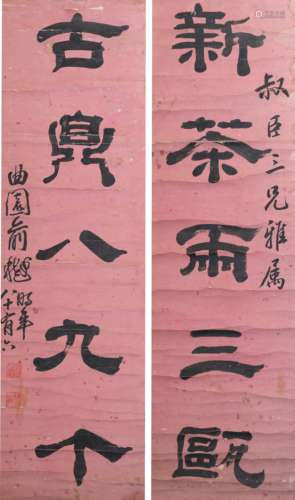 新茶兩三甌
叔臣三兄雅属
古鼎八九个
曲園俞樾時年
八十有六